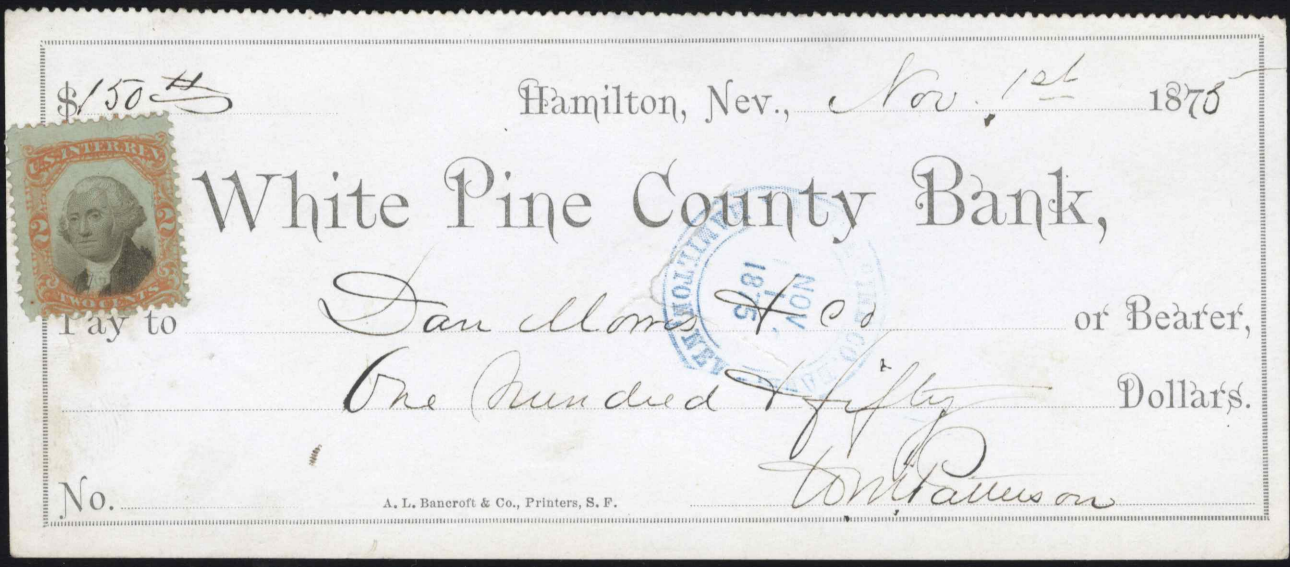 $150 00 Hamilton, Nev., Nov. 1st 1875
U.S. INTER. REV.
2 2
TWO CENTS
White Pine County Bank,
HAMILTON, NEV
NOV 1 1875
Pay to Dan Morris & Co or Bearer,
One Hundred & fifty Dollars.
No. A. L. Bancroft & Co., Printers, S. F. Patterson